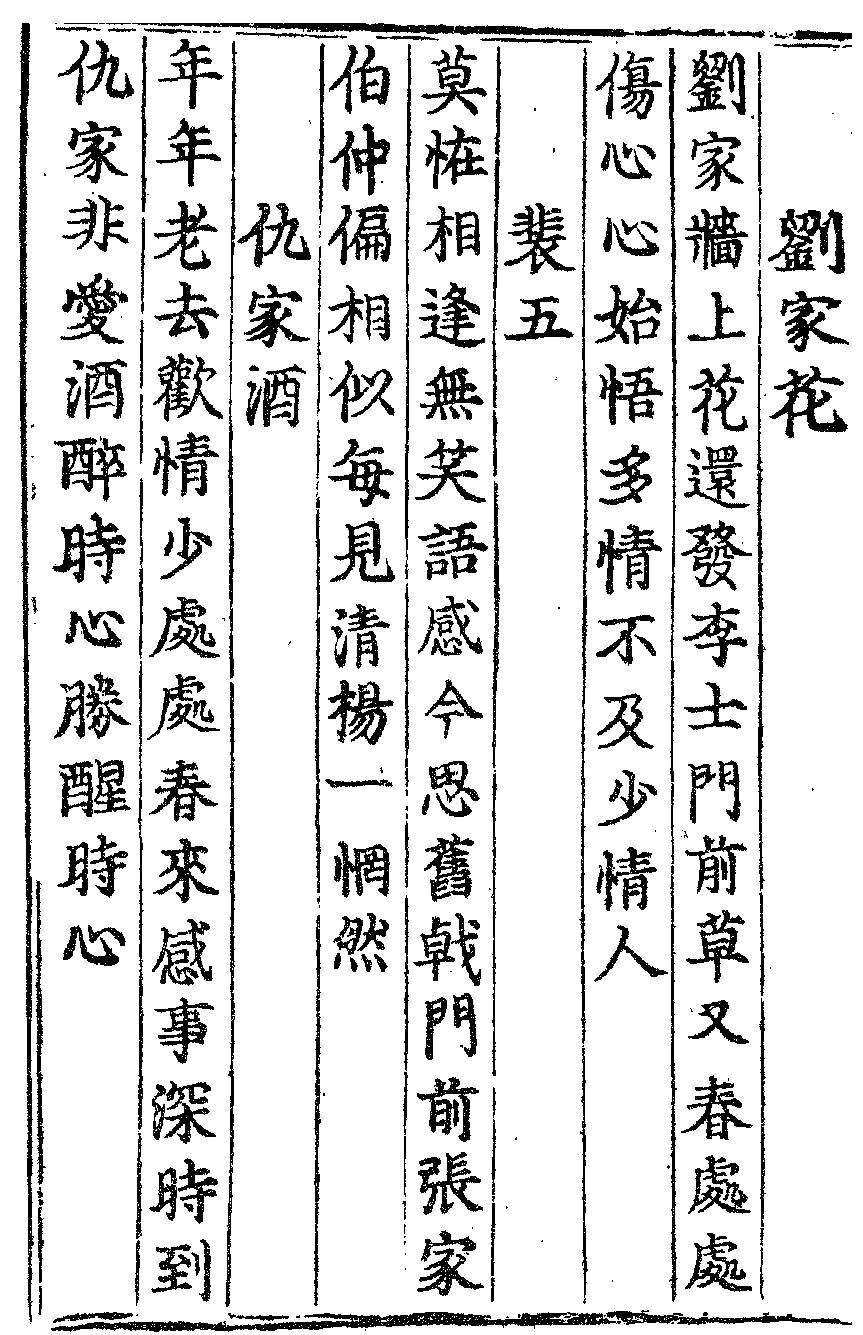 劉家花
劉家牆上花還發李士門前草又春處處
傷心心始悟多情不及少情人
裴五
莫恠相逢無笑語感今思舊戟門前張家
伯仲偏相似每見清楊一惘然
仇家酒
年年老去歡情少處處春來感事深時到
仇家非愛酒醉時心勝醒時心